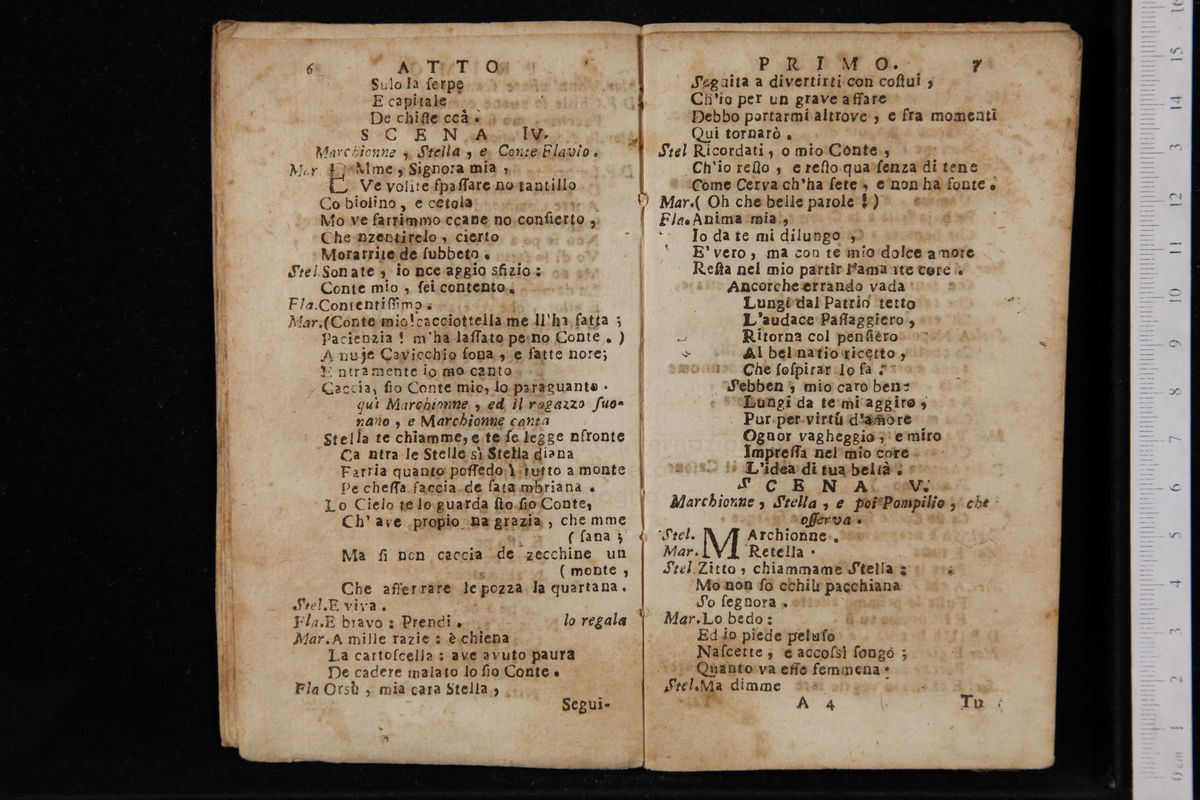 6 ATTO
Sulo la serpe
E capitale
De chiste ccà.
SCENA IV.
Marchionne, Stella, e Conte Flavio.
Mar. EMme, Signora mia,
Ve volite spassare no tantillo
Co biolino, e cetola
Mo ve farrimmo ccane no consierto,
Che nzentirelo, cierto
Morarrite de subbeto.
Stel. Sonate, io nce aggio sfizio:
Conte mio, sei contento.
Fla. Contentissimo.
Mar. (Conte mio! cacciottella me ll'ha fatta;
Pacienzia! m'ha lassato pe no Conte.)
A nuje Cavicchio sona, e fatte nore;
E ntramente io mo canto
Caccia, sio Conte mio, lo paraguanto.
quì Marchionne, ed il ragazzo suo-
nano, e Marchionne canta
Stella te chiamme, e te se legge nfronte
Ca ntra le Stelle sì Stella diana
Farria quanto possedo ì tutto a monte
Pe chessa faccia de fata mbriana.
Lo Cielo te lo guarda sto sio Conte,
Ch' ave propio na grazia, che mme
(sana;
Ma si non caccia de zecchine un
(monte,
Che afferrare le pozza la quartana.
Stel. E viva.
Fla. E bravo: Prendi. lo regala
Mar. A mille razie: è chiena
La cartoscella: ave avuto paura
De cadere malato lo sio Conte.
Fla Orsù, mia cara Stella,
Segui-
PRIMO. 7
Seguita a divertirti con costui,
Ch'io per un grave affare
Debbo portarmi altrove, e fra momenti
Qui tornarò.
Stel Ricordati, o mio Conte,
Ch'io resto, e resto qua senza di tene
Come Cerva ch'ha sete, e non ha fonte.
Mar. (Oh che belle parole!)
Fla. Anima mia,
Io da te mi dilungo,
E' vero, ma con te mio dolce amore
Resta nel mio partir l'amante core.
Ancorche errando vada
Lungi dal Patrio tetto
L'audace Passaggiero,
Ritorna col pensiero
Al bel natio ricetto,
Che sospirar lo fa.
Sebben, mio caro bene
Lungi da te mi aggiro,
Pur per virtù d'amore
Ognor vagheggio, e miro
Impressa nel mio core
L'idea di tua beltà.
SCENA V.
Marchionne, Stella, e poi Pompilio, che
osserva.
Stel. MArchionne.
Mar. Retella.
Stel. Zitto, chiammame Stella:
Mo non so cchiù pacchiana
So segnora.
Mar. Lo bedo:
Ed io piede peluso
Nascette, e accossì songo;
Quanto va esse femmena!
Stel. Ma dimme
A 4 Tu